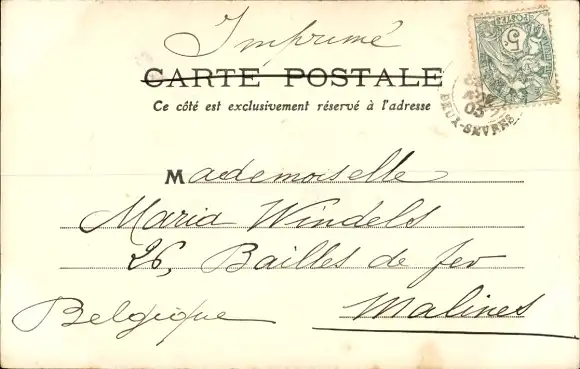 Imprimé
CARTE POSTALE
Ce côté est exclusivement réservé à l'adresse
5c
POSTES
03
DEUX-SEVRES
Mademoiselle
Maria Windels
26, Bailles de fer
Malines
Belgique